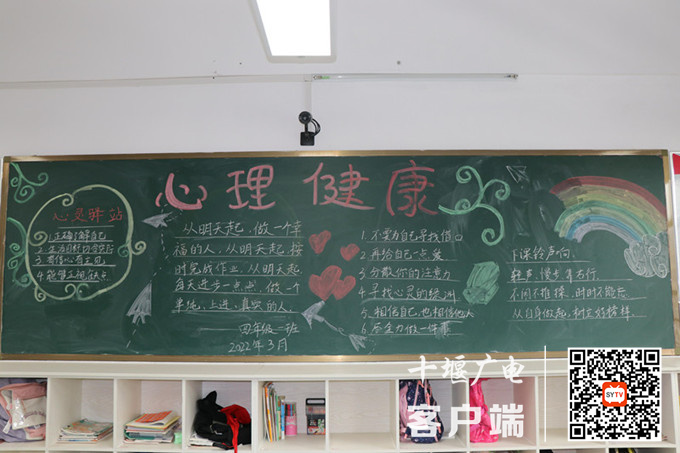 心理健康
心灵驿站
1.正确了解自己
4.能够正视缺点
从明天起,做一个幸
福的人,从明天起按
时完成作业,从明天起
每天进步一点点,做一个
单纯、上进、真实的人.
四年级一班
2022年3月
1.不要为自己寻找借口
2.再给自己一点爱
3.分散你的注意力
4.寻找心灵的绿洲
5.相信自己,也相信他人
6.尽全力做一件事
下课铃声响,
轻声、慢步、靠右行,
不闹不推操,时时不能忘
从自身做起,树立好榜样
十堰广电
客户端
SYTV